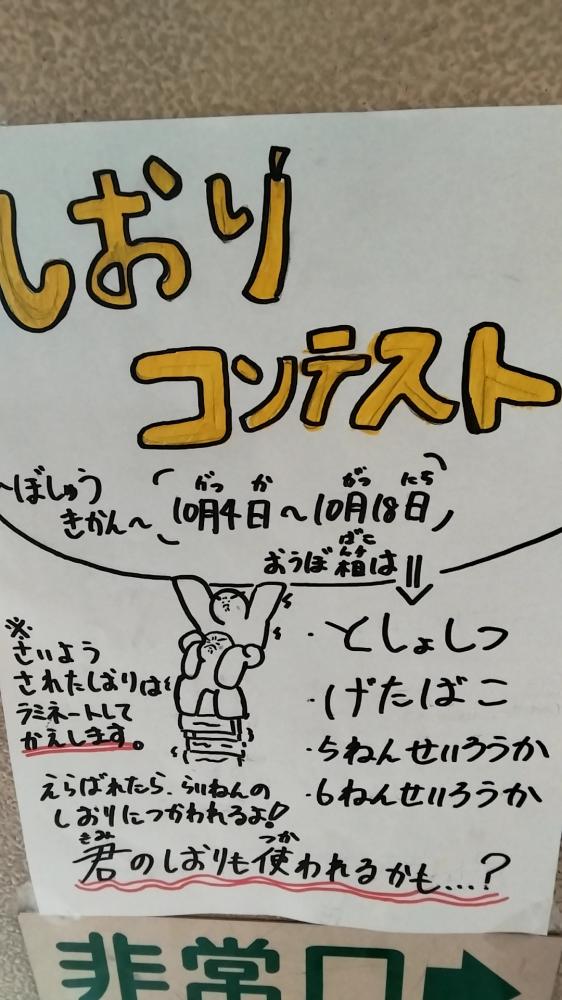 しおり
コンテスト
~ぼしゅう
きかん~
10月4日~10月18日
おうぼ箱は
・としょしつ
・げたばこ
・5ねんせいろうか
・6ねんせいろうか
※
さいよう
されたしおりは
ラミネートして
かえします。
えらばれたら、らいねんの
しおりにつかわれるよ!
君のしおりも使われるかも...?
非常口